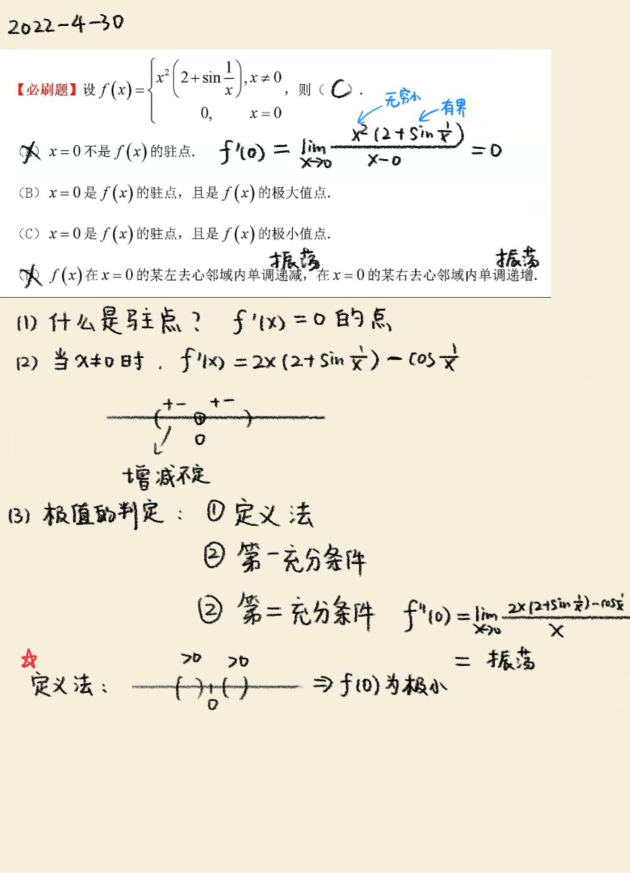 2022-4-30
【必刷题】设 f(x)={ x²(2+sin 1/x), x≠0
0, x=0 ,则( C ).
无穷小 有界
(A) x=0不是f(x)的驻点. f'(0) = lim x→0 x²(2+sin 1/x) / x-0 = 0
(B) x=0是f(x)的驻点,且是f(x)的极大值点.
(C) x=0是f(x)的驻点,且是f(x)的极小值点.
振荡 振荡
(D) f(x)在x=0的某左去心邻域内单调递减,在x=0的某右去心邻域内单调递增.
(1) 什么是驻点? f'(x)=0 的点
(2) 当x≠0时, f'(x)=2x(2+sin 1/x)-cos 1/x
+ - + -
0
增减不定
(3) 极值的判定: ① 定义法
② 第一充分条件
② 第二充分条件 f''(0)=lim x→0 2x(2+sin 1/x)-cos 1/x / x
= 振荡
☆ >0 >0
定义法: ( ) ( ) ⇒ f(0)为极小
0